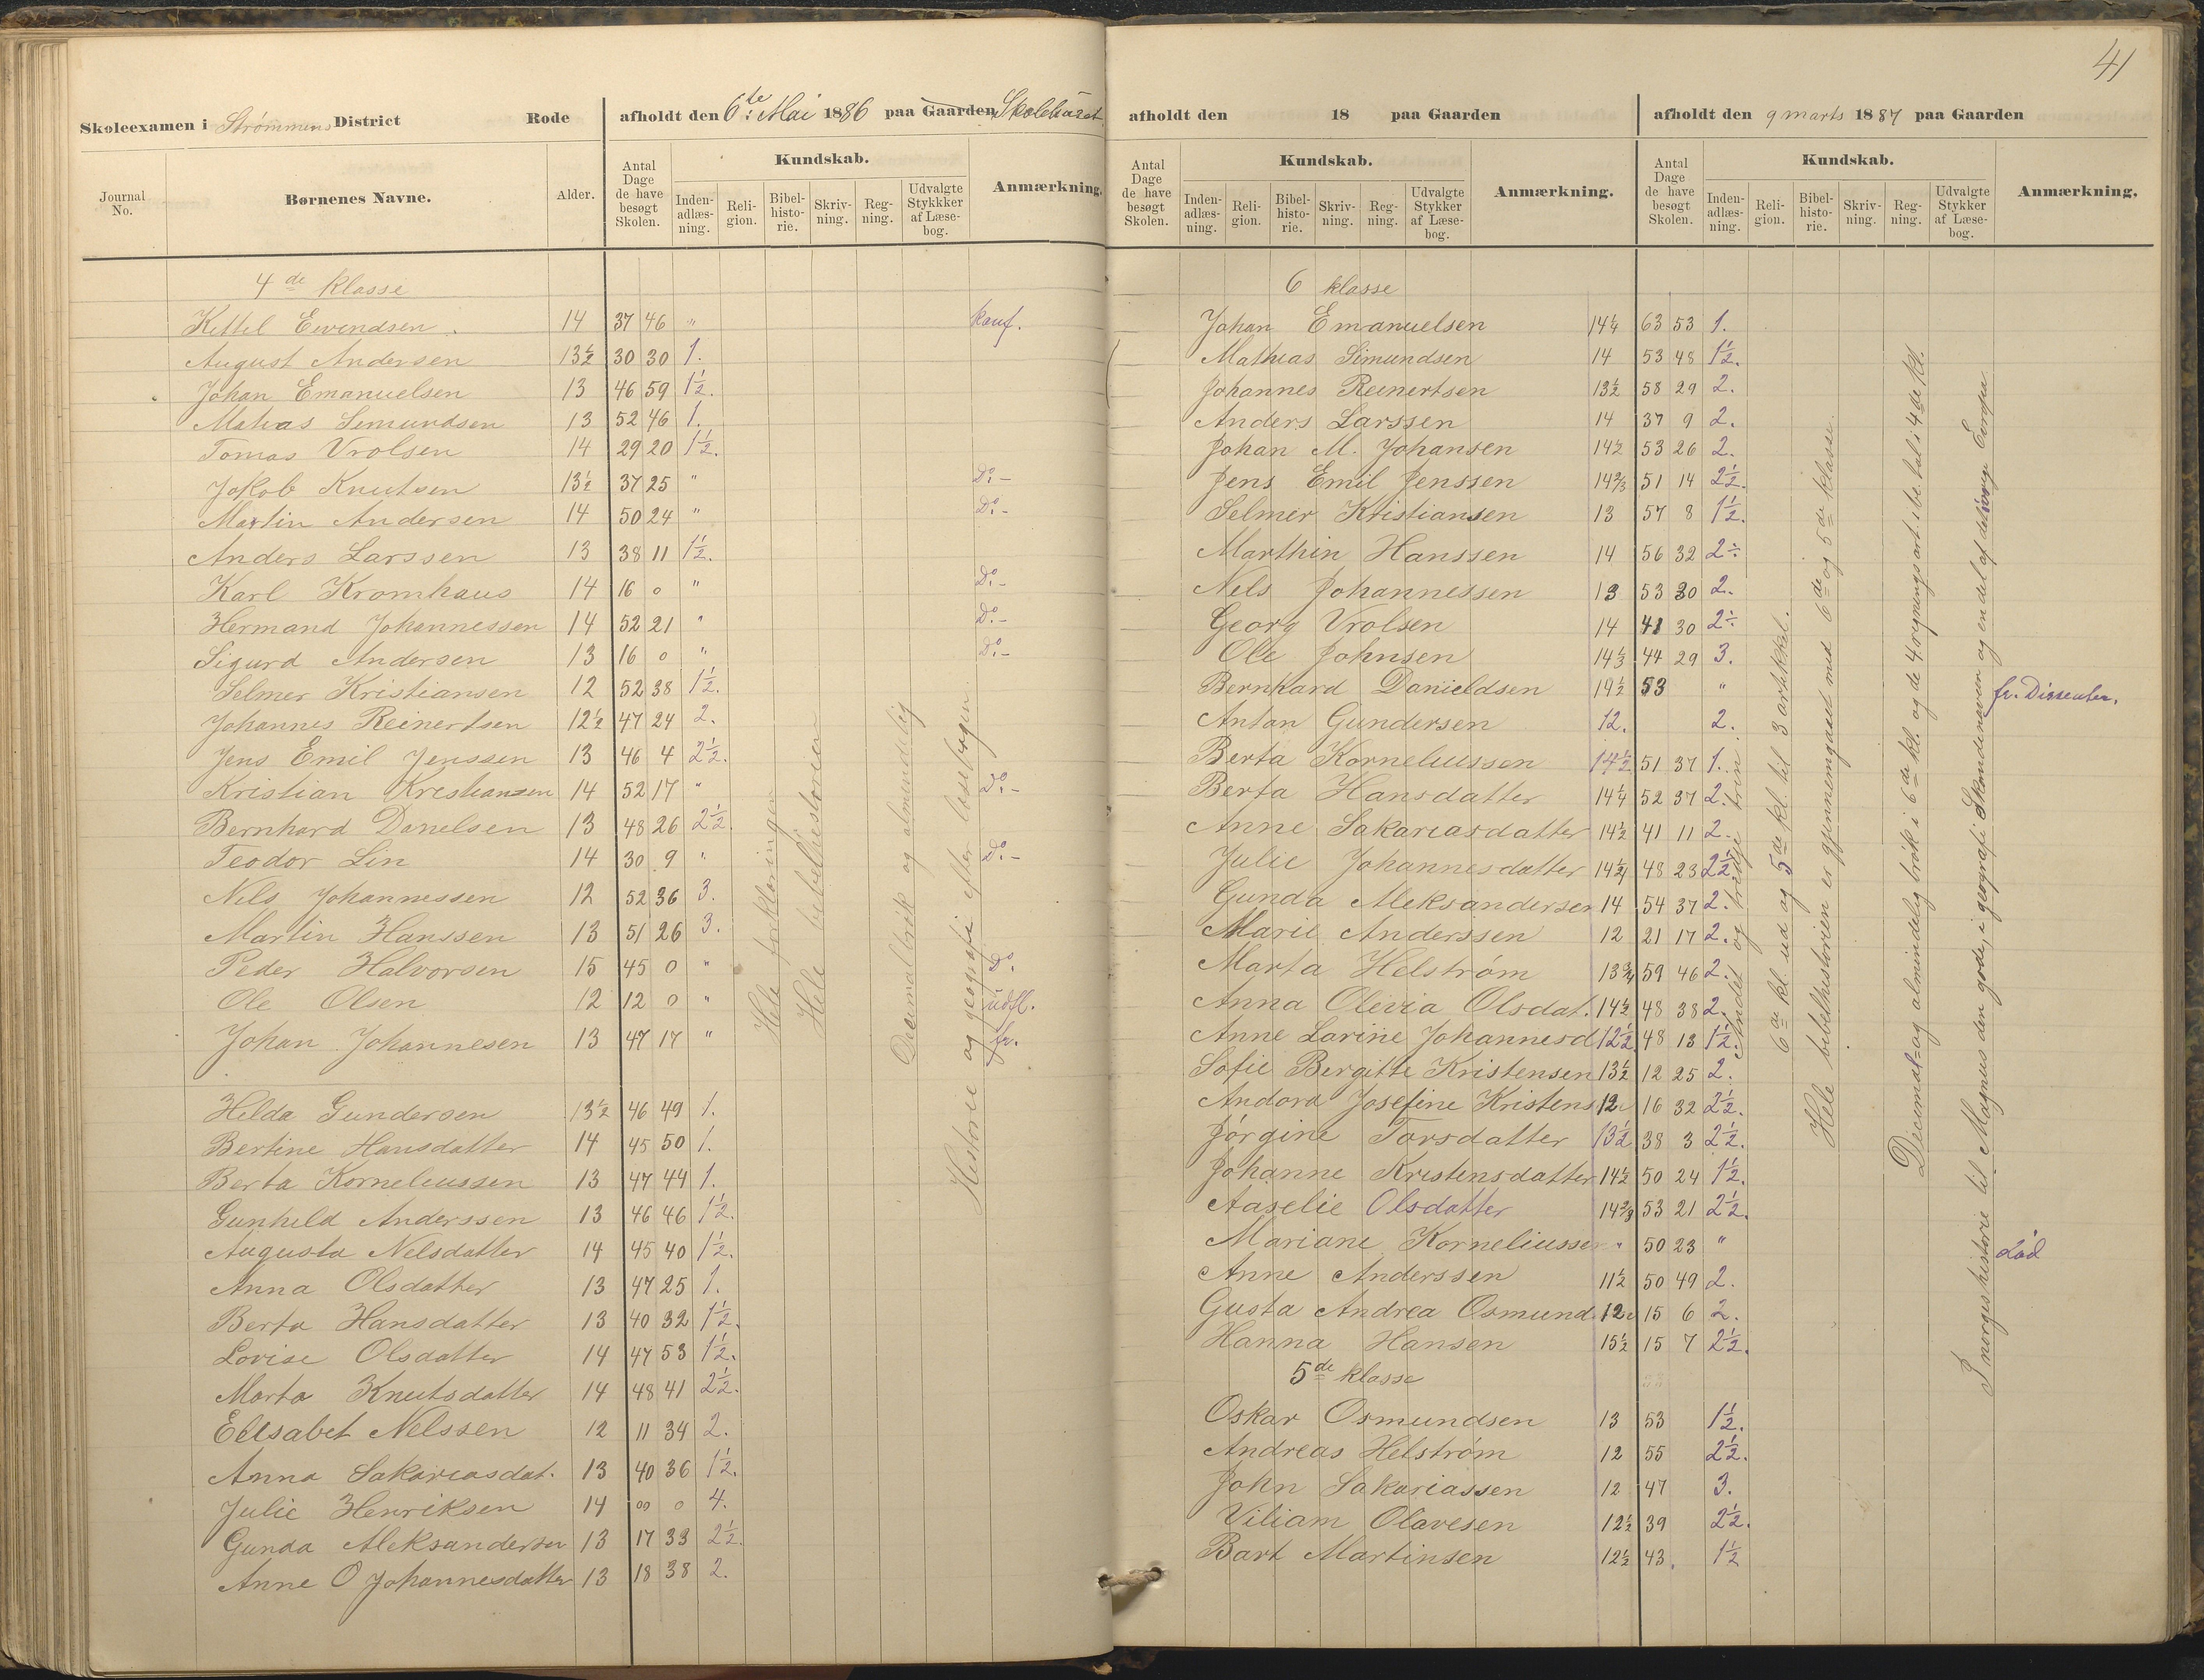 Skoleexamen i Strømmens District Rode afholdt den 6te Mai 1886 paa Gaarden Skolehuset.
Journal No. Børnenes Navne. Alder. Antal Dage de have besøgt Skolen. Kundskab. Indenadlæsning. Religion. Bibelhistorie. Skrivning. Regning. Udvalgte Stykkker af Læsebog. Anmærkning.
4de klasse
Kittel Evendsen. 14 37 46 " konf.
August Andersen 13½ 30 30 1.
Johan Emanuelsen 13 46 59 1½.
Matias Simundsen 13 52 46 1.
Tomas Vrolsen 14 29 20 1½.
Jakob Knutsen 13½ 37 25 " Do.-
Martin Andersen 14 50 24 " Do.-
Anders Larssen 13 38 11 1½.
Karl Kromhaus 14 16 0 " Do.-
Hermand Johannessen 14 52 21 " Do.-
Sigurd Andersen 13 16 0 " Do.-
Selmer Kristiansen 12 52 38 1½.
Johannes Reinertsen 12½ 47 24 2.
Jens Emil Jenssen 13 46 4 2½.
Kristian Kristiansen 14 52 17 " Do.-
Bernhard Danelsen 13 48 26 2½.
Teodor Lin 14 30 9 " Do.-
Nils Johannessen 12 52 36 3.
Martin Hanssen 13 51 26 3.
Peder Halvorsen 15 45 0 " Do.
Ole Olsen 12 12 0 " udfl.
Johan Johannesen 13 47 17 " fr.
Hilda Gundersen 13½ 46 49 1.
Bertine Hansdatter 14 45 50 1.
Berta Korneliussen 13 47 44 1.
Gunhild Anderssen 13 46 46 1½.
Augusta Nelsdatter 14 45 40 1½.
Anna Olsdatter 13 47 25 1.
Berta Hansdatter 13 40 32 1½.
Lovise Olsdatter 14 47 53 1½.
Marta Knutsdatter 14 48 41 2½.
Elisabet Nelssen 12 11 34 2.
Anna Sakariasdat. 13 40 36 1½.
Julie Henriksen 14 00 0 4.
Gunda Aleksandersen 13 17 33 2½.
Anne O Johannesdatter 13 18 38 2.
Hele forklaringen
Hele bibelhistorien
Decimalbrøk og almindelig
Historie og geografi efter læsebogen.
41
afholdt den 18 paa Gaarden
Antal Dage de have besøgt Skolen. Kundskab. Indenadlæsning. Religion. Bibelhistorie. Skrivning. Regning. Udvalgte Stykker af Læsebog. Anmærkning.
afholdt den 9 marts 1887 paa Gaarden
Antal Dage de have besøgt Skolen. Kundskab. Indenadlæsning. Religion. Bibelhistorie. Skrivning. Regning. Udvalgte Stykker af Læsebog. Anmærkning.
6 klasse
Johan Emanuelsen 14¼ 63 53 1.
Mathias Simundsen 14 53 48 1½.
Johannes Reinertsen 13½ 58 29 2.
Anders Larssen 14 37 9 2.
Johan M. Johansen 14½ 53 26 2.
Jens Emil Jenssen 14⅔ 51 14 2½.
Selmer Kristiansen 13 57 8 1½.
Marthin Hanssen 14 56 32 2÷
Nels Johannessen 13 53 30 2.
Georg Vrolsen 14 41 30 2÷
Ole Johnsen 14⅓ 44 29 3.
Bernhard Danieldsen 14½ 53 " fr. Dissenter.
Antan Gundersen 12. 2.
Berta Korneliussen 14½ 51 37 1.
Berta Hansdatter 14¼ 52 37 2.
Anne Sakariasdatter 14½ 41 11 2.
Julie Johannesdatter 14¼ 48 23 2½
Gunda Aleksandersen 14 54 37 2.
Marie Anderssen 12 21 17 2.
Marta Helstrøm 13¾ 59 46 2.
Anna Olevia Olsdat. 14½ 48 38 2.
Anne Larine Johannesd 12½ 48 13 1½.
Sofie Bergitte Kristensen 13½ 12 25 2.
Andora Josefine Kristens 12 16 32 2½.
Jørgine Torsdatter 13½ 38 3 2½.
Johanne Kristensdatter 14½ 50 24 1½.
Aaselie Olsdatter 14⅔ 53 21 2½.
Mariane Korneliussen " 50 23 " død
Anne Anderssen 11½ 50 49 2.
Gusta Andrea Osmund 12 15 6 2.
Hanna Hansen 15½ 15 7 2½.
5de klasse
Oskar Osmundsen 13 53 1½.
Andreas Helstrøm 12 55 2½.
John Sakariassen 12 47 3.
Viliam Olavesen 12½ 39 2½.
Bart Martinsen 12½ 43. 1½
Andet og tredje trin
6de kl. ud og 5de kl. til 3 artikkel.
Hele bibelhistorien er gjennemgaaet med 6de og 5de klasse.
Decimal= og almindelig brøk i 6de kl. og de 4 regningsart. i be. tal i 4de kl.
I norges historie til Magnus den gode, i geografi Skandinavien og en del af det øvrige Europa.